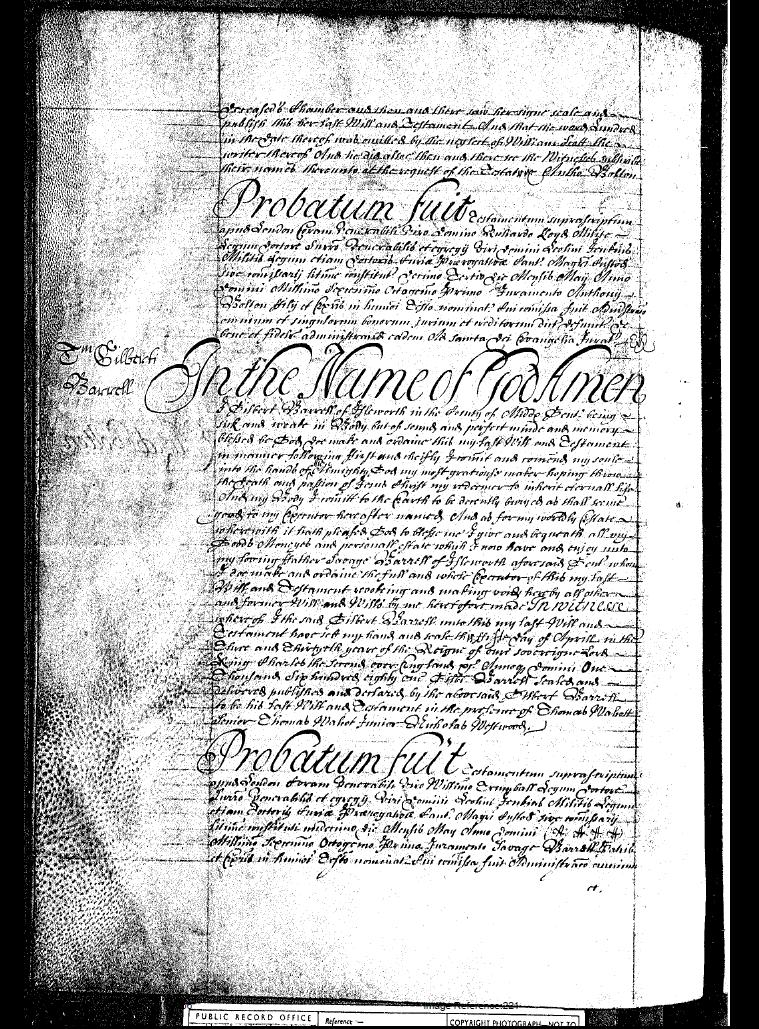 deceased's Chamber and then and there saw her signe seale and
publish this her last Will and Testament And that the word hundred
in the date thereof was omitted by the neglect of William Scott the
writer thereof And he did alsoe then and there see the Witnesses subscribe
their names thereunto at the request of the Testatrix Antho: Bolton
Probatum fuit Testamentum suprascriptum
apud London Coram Venerabili Viro Domino Richardo Lloyd Milite
Legum Doctore Surro Venerabilis et egregij Viri Domini Leolini Jenkins
Militis Legum etiam Doctoris Curiæ Prærogativæ Cant. Magri Custod
sive comissarij litime constitut Decimo Tertio die Mensis Maij Anno
Domini Millimo Sexcenmo Octogemo Primo Juramento Anthony
Bolton filij et Extris in humoi Testo nominat. Cui comissa fuit Administraco
omnium et singulorum bonorum jurium et creditorum dict defuncti De
bene et fideliter administrand eadem Ad Sancta Dei Evangelia Jurat.
Tm Gilberti
Barrell
In the Name of God Amen
I Gilbert Barrell of Isleworth in the County of Middx Gent. being
sick and weake in Body but of sound and perfect minde and memory
blessed be God doe make and ordaine this my last Will and Testament
in manner following First and cheifly I comit and comend my soule
into the hands of Almighty God my most gratious maker hoping through
the death and passion of Jesus Christ my redeemer to inherit eternall life
And my Body I comitt to the Earth to be decently buryed as shall seeme
good to my Executor hereafter named And as for my worldly Estate
wherewith it hath pleased God to blesse me I give and bequeath all my
Goods Moneyes and personall estate which I now have and enjoy unto
my loving Father Savage Barrell of Isleworth aforesaid Gent. whom
I doe make and ordaine the full and whole Executor of this my last
Will and Testament revoking and making void hereby all other
and former Will and Wills by me heretofore made In witnesse
whereof I the said Gilbert Barrell unto this my last Will and
Testament have set my hand and seale the day of Aprill in the
Three and Thirtyeth yeare of the Reigne of our Sovereigne Lord
King Charles the Second over England &c. Annoq Domini One
Thousand Six hundred eighty one Gilbt: Barrell Sealed and
delivered published and declared by the abovesaid Gilbert Barrell
to be his last Will and Testament in the presence of Thomas Mabott
senior Thomas Mabot junior Nicholas Westwood.
Probatum fuit Testamentum suprascriptum
apud London Coram Venerabili Viro Willimo Trumball Legum Doctore
Surro Venerabilis et egregij Viri Domini Leolini Jenkins Militis Legum
etiam Doctoris Curiæ Prærogativæ Cant. Magri Custod sive comissarij
litime constituti undecimo die Mensis Maij Anno Domini
Millimo Sexcenmo Octogemo Primo Juramento Savage Barrell Patris
et Extris in humoi Testo nominat. Cui comissa fuit Administraco omnium
et.
Image Reference:221
PUBLIC RECORD OFFICE
Reference :—
COPYRIGHT PHOTOGRAPH—NOT TO